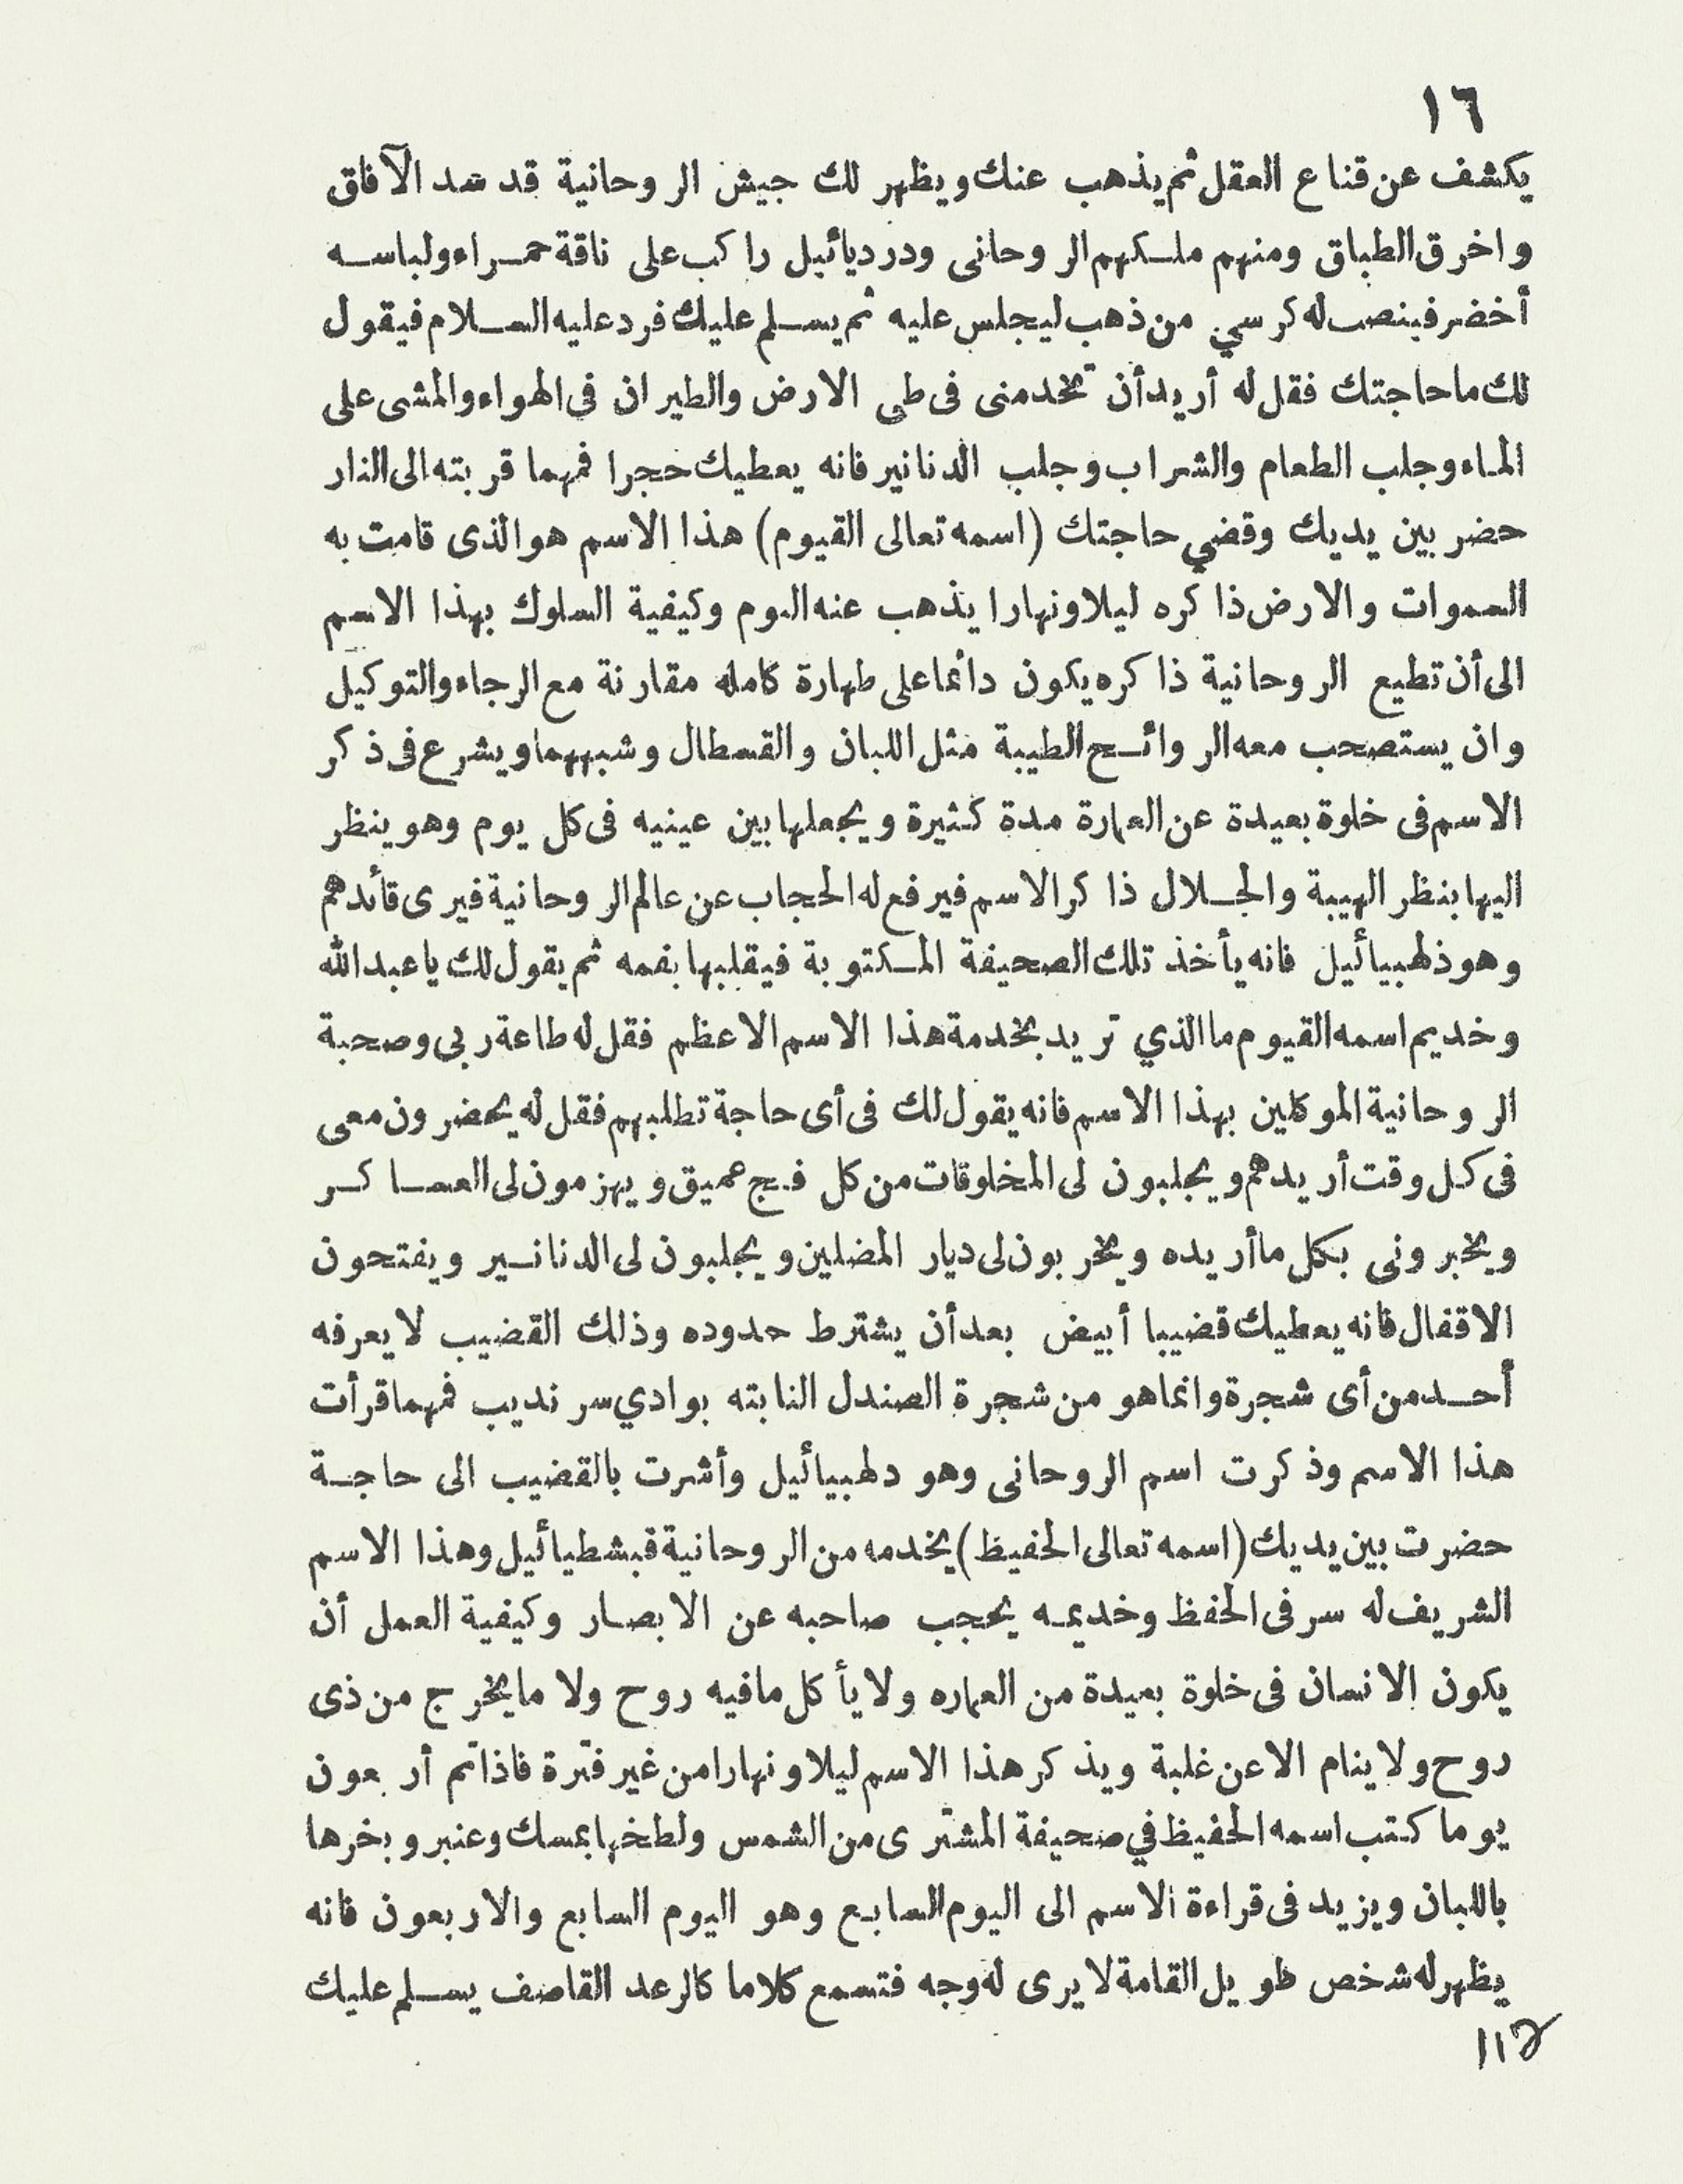 ١٦
يكشف عن قناع العقل ثم يذهب عنك ويظهر لك جيش الروحانية قد سد الآفاق
واخرق الطباق ومنهم ملكهم الروحانى ودرديائيل راكب على ناقة حمراء ولباسه
أخضر فينصب له كرسي من ذهب ليجلس عليه ثم يسلم عليك فرد عليه السلام فيقول
لك ما حاجتك فقل له أريد أن تخدمنى فى طى الارض والطيران في الهواء والمشى على
الماء وجلب الطعام والشراب وجلب الدنانير فانه يعطيك حجرا فمهما قربته الى النار
حضر بين يديك وقضي حاجتك (اسمه تعالى القيوم) هذا الاسم هو الذى قامت به
السموات والارض ذاكره ليلا ونهارا يذهب عنه النوم وكيفية السلوك بهذا الاسم
الى أن تطيع الروحانية ذاكره يكون دائما على طهارة كامله مقارنة مع الرجاء والتوكيل
وان يستصحب معه الروائح الطيبة مثل اللبان والقسطال وشبههما ويشرع فى ذكر
الاسم فى خلوة بعيدة عن العمارة مدة كثيرة ويجعلها بين عينيه فى كل يوم وهو ينظر
اليها بنظر الهيبة والجلال ذاكر الاسم فيرفع له الحجاب عن عالم الروحانية فيرى قائدهم
وهو ذلهبيائيل فانه يأخذ تلك الصحيفة المكتوبة فيقلبها بفمه ثم يقول لك يا عبد الله
وخديم اسمه القيوم ما الذي تريد بخدمة هذا الاسم الاعظم فقل له طاعة ربى وصحبة
الروحانية الموكلين بهذا الاسم فانه يقول لك فى أى حاجة تطلبهم فقل له يحضرون معى
فى كل وقت أريدهم ويجلبون لى المخلوقات من كل فج عميق ويهزمون لى العساكر
ويخبرونى بكل ما أريده ويخربون لى ديار المضلين ويجلبون لى الدنانير ويفتحون
الاقفال فانه يعطيك قضيبا أبيض بعد أن يشترط حدوده وذلك القضيب لا يعرفه
أحد من أى شجرة وانما هو من شجرة الصندل النابته بوادي سرنديب فمهما قرأت
هذا الاسم وذكرت اسم الروحانى وهو دلهبيائيل وأشرت بالقضيب الى حاجة
حضرت بين يديك (اسمه تعالى الحفيظ) يخدمه من الروحانية قبشطيائيل وهذا الاسم
الشريف له سر فى الحفظ وخديمه يحجب صاحبه عن الابصار وكيفية العمل أن
يكون الانسان فى خلوة بعيدة من العماره ولا يأكل ما فيه روح ولا ما يخرج من ذى
روح ولا ينام الا عن غلبة ويذكر هذا الاسم ليلا ونهارا من غير فترة فاذا تم أربعون
يوما كتب اسمه الحفيظ في صحيفة المشترى من الشمس ولطخها بمسك وعنبر وبخرها
باللبان ويزيد فى قراءة الاسم الى اليوم السابع وهو اليوم السابع والاربعون فانه
يظهر له شخص طويل القامة لا يرى له وجه فتسمع كلاما كالرعد القاصف يسلم عليك